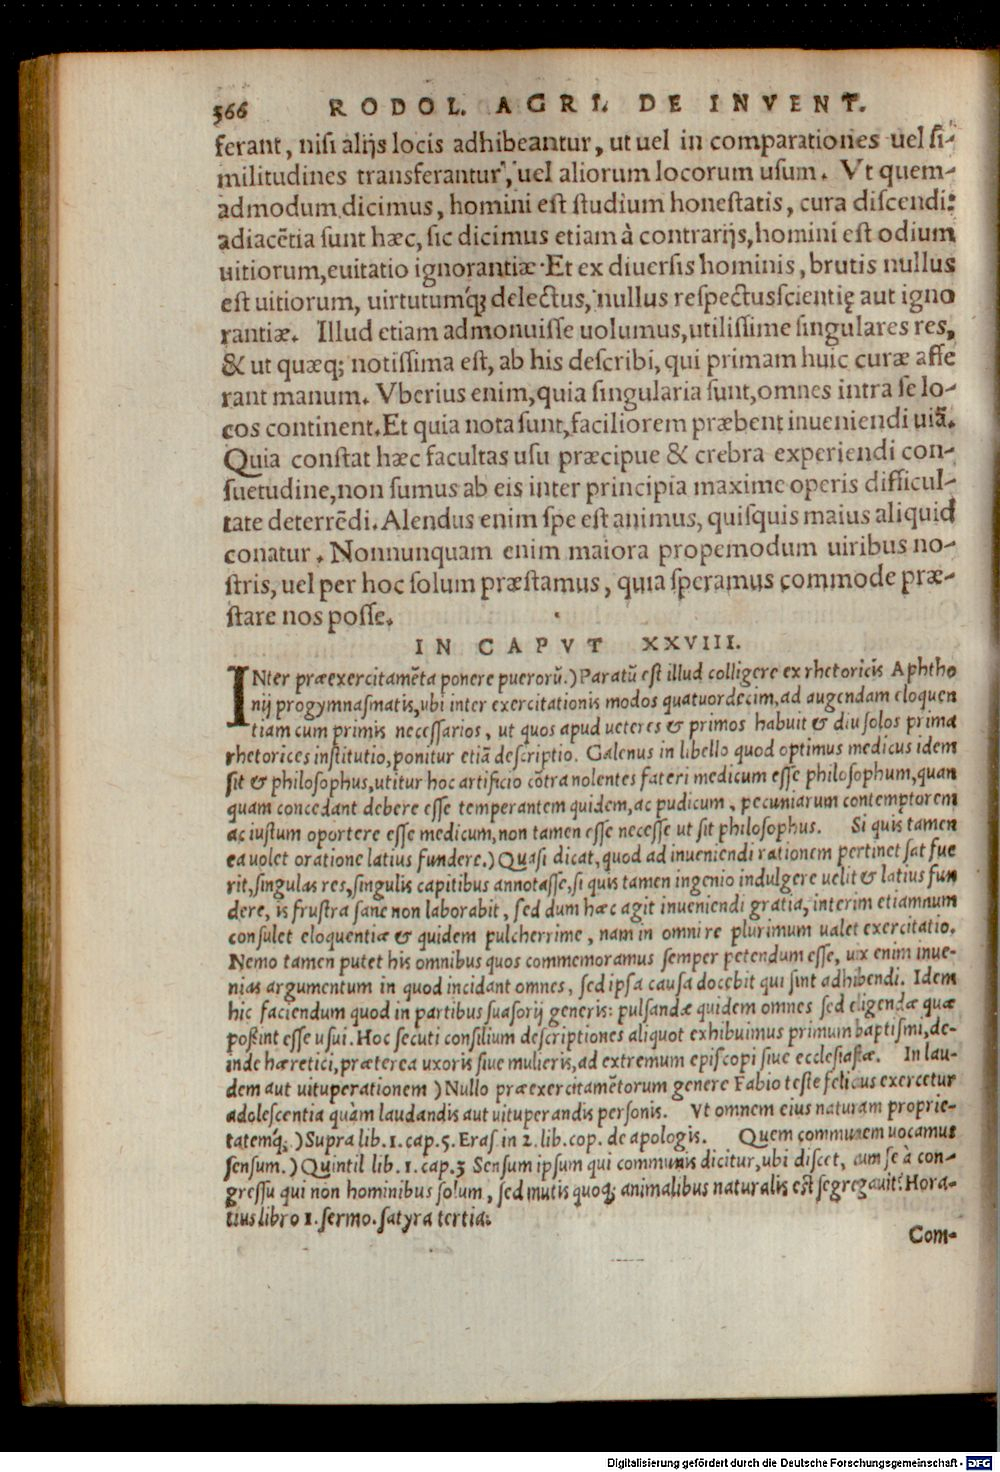 366 RODOL. AGRI. DE INVENT.
ferant, nisi alijs locis adhibeantur, ut uel in comparationes uel si-
militudines transferantur, uel aliorum locorum usum. Vt quem-
admodum dicimus, homini est studium honestatis, cura discendi:
adiacẽtia sunt hæc, sic dicimus etiam à contrarijs, homini est odium
uitiorum, euitatio ignorantiæ. Et ex diuersis hominis, brutis nullus
est uitiorum, uirtutumq́ꝫ delectus, nullus respectus scientię aut igno
rantiæ. Illud etiam admonuisse uolumus, utilissime singulares res,
& ut quæq; notissima est, ab his describi, qui primam huic curæ affe
rant manum. Vberius enim, quia singularia sunt, omnes intra se lo-
cos continent. Et quia nota sunt, faciliorem præbent inueniendi uiã.
Quia constat hæc facultas usu præcipue & crebra experiendi con-
suetudine, non sumus ab eis inter principia maxime operis difficul-
tate deterrẽdi. Alendus enim spe est animus, quisquis maius aliquid
conatur. Nonnunquam enim maiora propemodum uiribus no-
stris, uel per hoc solum præstamus, quia speramus commode præ-
stare nos posse.
IN CAPVT XXVIII.
INter præexercitamẽta ponere puerorũ.) Paratũ est illud colligere ex rhetoricis Aphtho
nij progymnasmatis, vbi inter exercitationis modos quatuordecim, ad augendam eloquen
tiam cum primis necessarios, ut quos apud ueteres & primos habuit & diu solos prima
rhetorices institutio, ponitur etiã descriptio. Galenus in libello quod optimus medicus idem
sit & philosophus, utitur hoc artificio cõtra nolentes fateri medicum esse philosophum, quan
quam concedant debere esse temperantem quidem, ac pudicum, pecuniarum contemptorem
ac iustum oportere esse medicum, non tamen esse necesse ut sit philosophus. Si quis tamen
ea uolet oratione latius fundere.) Quasi dicat, quod ad inueniendi rationem pertinet sat fue
rit, singulas res, singulis capitibus annotasse, si quis tamen ingenio indulgere uelit & latius fun
dere, is frustra sane non laborabit, sed dum hæc agit inueniendi gratia, interim etiamnum
consulet eloquentiæ & quidem pulcherrime, nam in omni re plurimum ualet exercitatio.
Nemo tamen putet his omnibus quos commemoramus semper petendum esse, uix enim inue-
nias argumentum in quod incidant omnes, sed ipsa causa docebit qui sint adhibendi. Idem
hic faciendum quod in partibus suasorij generis: pulsandæ quidem omnes sed eligendæ quæ
possint esse usui. Hoc secuti consilium descriptiones aliquot exhibuimus primum baptismi, de-
inde hæretici, præterea uxoris siue mulieris, ad extremum episcopi siue ecclesiastæ. In lau-
dem aut uituperationem) Nullo præexercitamẽtorum genere Fabio teste felicius exercetur
adolescentia quàm laudandis aut uituperandis personis. Vt omnem eius naturam proprie-
tatemq́;) Supra lib. 1. cap. 5. Eras. in 2. lib. cop. de apologis. Quem communem uocamus
sensum.) Quintil lib. 1. cap. 3 Sensum ipsum qui communis dicitur, ubi discet, cum se à con-
gressu qui non hominibus solum, sed mutis quoq; animalibus naturalis est segregauit? Hora-
tius libro 1. sermo. satyra tertia:
Com-
Digitalisierung gefördert durch die Deutsche Forschungsgemeinschaft - DFG